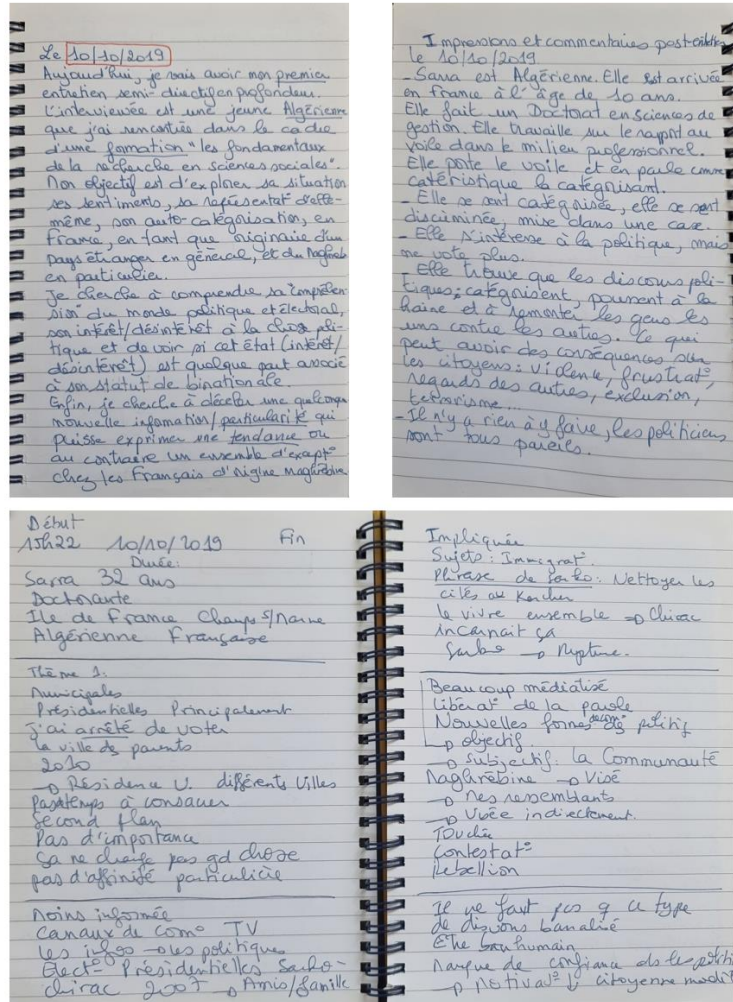 Le 10/10/2019
Aujourd'hui, je vais avoir mon premier
entretien semi-directif en profondeur.
L'interviewée est une jeune Algérienne
que j'ai rencontrée dans le cadre
d'une formation "les fondamentaux
de la recherche en sciences sociales".
Mon objectif est d'explorer sa situation
ses sentiments, sa représentat° d'elle-
même, son auto-catégorisation, en
France, en tant que originaire d'un
pays étranger en général, et du Maghreb
en particulier.
Je cherche à comprendre sa "compréhen-
sion" du monde politique et électoral,
son intérêt/désintérêt à la chose poli-
tique et de voir si cet état (intérêt/
désintérêt) est quelque part associé
à son statut de binationale.
Enfin, je cherche à déceler une quelconque
nouvelle information/particularité qui
puisse exprimer une tendance ou
au contraire un ensemble d'except°
chez les Français d'origine maghrébine
Impressions et commentaires post-entretien
le 10/10/2019
- Sarra est Algérienne. Elle est arrivée
en france à l'âge de 10 ans.
Elle fait un Doctorat en sciences de
gestion. Elle travaille sur le rapport au
voile dans le milieu professionnel.
Elle porte le voile et en parle comme
catéristique la catégorisant.
- Elle se sent catégorisée, elle se sent
discriminée, mise dans une case.
- Elle s'intéresse à la politique, mais
ne vote plus.
- Elle trouve que les discours poli-
tiques : catégorisent, poussent à la
haine et à remonter les gens les
uns contre les autres. Ce qui
peut avoir des conséquences sur
les citoyens : violence, frustrat°,
regards des autres, exclusion,
terrorisme...
- Il n'y a rien à y faire, les politiciens
sont tous pareils.
Début
15h22 10/10/2019 Fin
Durée:
Sarra 32 ans
Doctorante
Ile de France Champs s/Marne
Algérienne Française
Thème 1:
Municipales
Présidentielles Principalement
j'ai arrêté de voter
la ville des parents
2010
→ Résidence U. différents villes
Pas temps à consacrer
Second plan
Pas d'importance
Ça ne change pas gd chose
pas d'affinité particulière
Moins informée
Canaux de com° TV
les infos → les politiques
Elect° Présidentielles Sarko-
chirac 2007 → Amis/famille
Impliquée
Sujets : Immigrat°
Phrase de Sarko : Nettoyer les
cités au Karcher
le vivre ensemble → Chirac
incarnait ça
Sarko → Rupture.
Beaucoup médiatisé
libérat° de la parole
Nouvelles formes de com° politiq
→ objectif
→ subjectif : la Communauté
Maghrébine → Visé
→ Mes ressemblants
→ Visée indirectement.
Touchée
Contestat°
Rebellion
Il ne faut pas q ce type
de discours banalisé
Etre bon humain
Manque de confiance ds les politi
→ Motivat° ↓ citoyenne